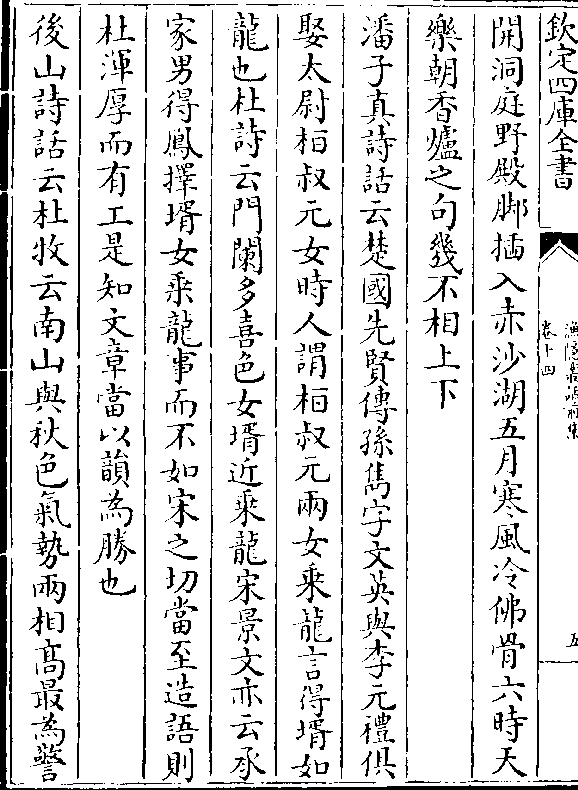 欽定四庫全書
漁隱叢話前集
卷十四
五
開洞庭野殿脚插入赤沙湖五月寒風冷佛骨六時天
樂朝香爐之句幾不相上下
潘子真詩話云楚國先賢傳孫雋字文英與李元禮俱
娶太尉柏叔元女時人謂柏叔元兩女乘龍言得壻如
龍也杜詩云門闌多喜色女壻近乘龍宋景文亦云承
家男得鳳擇壻女乘龍事而不如宋之切當至造語則
杜渾厚而有工是知文章當以韻為勝也
後山詩話云杜牧云南山與秋色氣勢兩相髙最為警